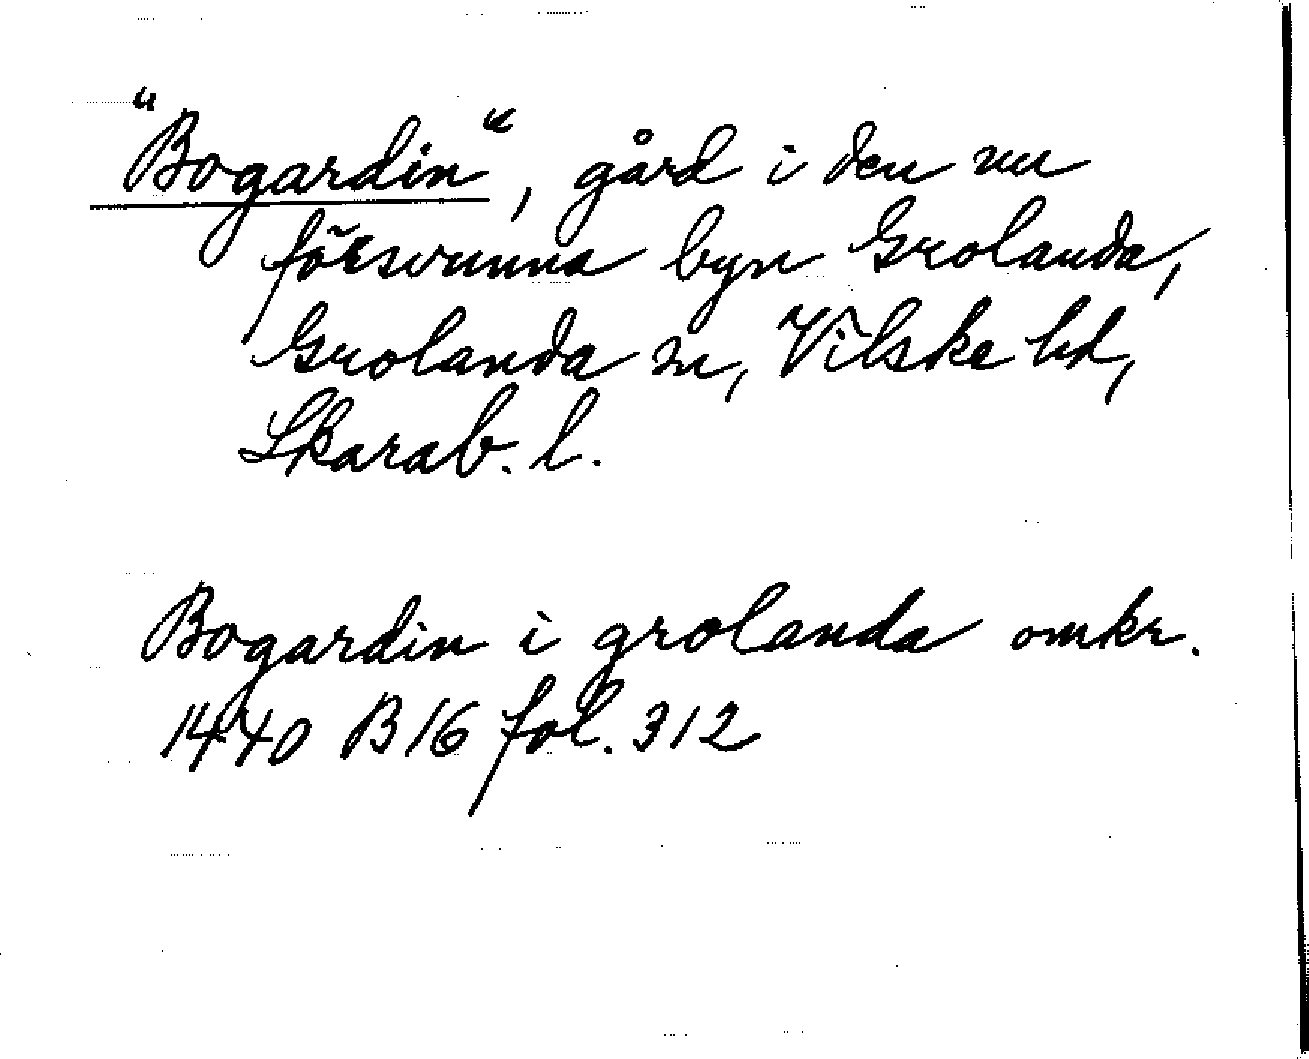 "Bogardin", gård i den nu
försvunna byn Grolanda,
Grolanda sn, Vilske hd,
Skarab. l.
Bogardin i grolanda omkr.
1440 B 16 fol. 312